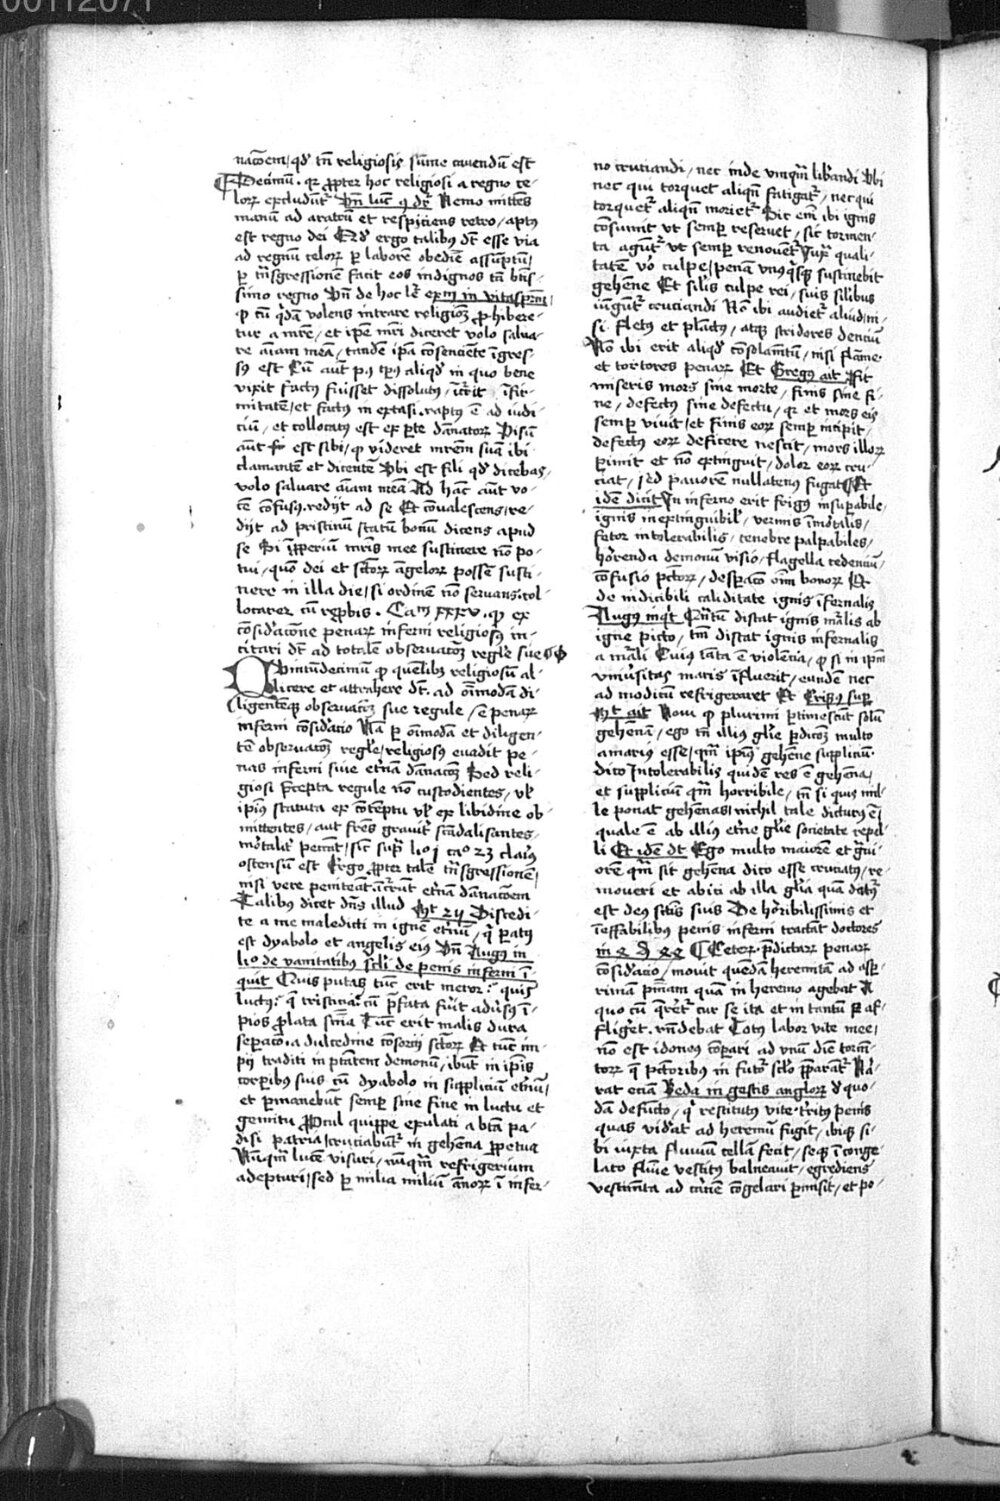 00112071
nacōem / qd' tn̄ religiosis sum̄e cauendū est
Decimū · qr ꝓpter hoc religiosi a regno ce-
lorꝝ excludunt᷑ Vn̄ luc̄ 9 dr̄ Nemo mittēs
manū ad aratrū et respiciens retro / aptꝰ
est regno dei Qd' ergo talibꝰ dr̄ esse via
ad regnū celorꝝ ꝑ laborē obediē assūptū /
ꝑ tn̄sgressionē facit eos indignos tā btīs-
simo regno Vn̄ de hoc lr̄ exm̄ in vitaspr̄m /
ꝙ cū qⁱdā volens intrare religionē ꝓhibere-
tur a mr̄e / et ipē mr̄i diceret volo salua-
re aīam meā / tandē ip̄a cōsenciente īgres-
sꝰ est Cū aut̄ p⁹ tp̄us aliqd' in quo bene
vixit factus fuisset dissolutus / īcⁱdit īfir-
mitatē / et factus in extasi raptus ē ad iudi-
ciū / et collocatus est ex ꝑte dānatorꝝ Visū
aūt est sibi / ꝙ videret mrēm suā ibi
clamantē et dicentē Vbi est fili qd' dicebas /
volo saluare aīam meā Ad hāc aūt vo-
cē cōfusꝰ redijt ad se Et cōualescens / re-
dijt ad pristinū statū bonū dicens apud
se Si īproperiū mr̄is mee sustinere nō po-
tui / quō dei et sctōrꝝ āgelorꝝ possē susti-
nere in illa die / si ordinē nō seruans / col-
locarer cū reprobis · Cam̄ xxxv · ꝙ ex
cōsid'acōne penarꝝ inferni religiosꝰ in-
citari dꝫ ad totalē obseruacōꝫ regle sue
Quintūdecimū ꝙ quēlibꝫ religiosū al-
licere et attrahere dꝫ · ad oīmodā di-
ligentēqꝫ obseruacōꝫ sue regule / ē penarꝝ
inferni cōsid'acio Nā ꝑ oīmodā et diligen-
tē obseruacōꝫ regle / religiosꝰ euadit pe-
nas inferni siue etnā dānacōꝫ Sed reli-
giosi p̄cepta regule nō custodientes / vl'
ipiꝰ statuta ex cōtēptu vl' ex libidine ob-
mittentes / aut fr̄es grauit᷑ scādalisantes
mortalit᷑ peccāt / sic sup̄ lio 1 cao 23 clariꝰ
ostensū est Ergo ꝓpter talē tn̄sgressionē /
nisi vere peniteat īcurrūt etnā dānacōem
Talibus dicet dn̄s illud Mt 25 Discedi-
te a me maledicti in ignē etnū / qⁱ patꝰ
est dyabolo et angelis eiꝰ Vn̄ Augꝰ in
lio de vanitatibꝰ scli de penis inferni ī-
quit Quis putas tūc erit meror · quis
luctꝰ · q̄ tristicia · cū p̄fata fuit adūsꝰ ī-
pios ꝓlata sn̄ia Tūc erit malis dura
seꝑacō a dulcedine cōsorcij sctōrꝝ Et tūc im-
pij traditi in ptātem demonū / ibūt in ip̄is
corꝑibꝰ suis cū dyabolo in suppliciū etnū /
et ꝑmanebūt semꝑ sine fine in luctu et
gemitu Procul quippe exulati a bt̄a pa-
disi patria / cruciabūt᷑ in gehēna ꝑpetua
Nūqm̄ lucē visuri / nūqm̄ refrigerium
adepturi / sed ꝑ milia miliū ānorꝝ ī infer-
no cruciandi / nec inde vmqm̄ librandi Vbi
nec qui torquet aliqn̄ fatigat᷑ / nec qui
torquet᷑ aliqn̄ moriet᷑ Sic enī ibi ignis
cōsumit vt semꝑ reseruet / sic tormen-
ta agūt᷑ vt semꝑ renouent᷑ Iuxᵃ quali-
tatē vō culpe / penā vnusqⁱsqꝫ sustinebit
gehēne Et silis culpe rei / suis silibus
iūgunt᷑ cruciandi Nō ibi audiet᷑ aliud / ni-
si fletus et planctus / atqꝫ stridores denciū
Nō ibi erit aliqd' cōsolamētū / nisi flāme
et tortores penarꝝ Et Gregꝰ ait Fit
miseris mors sine morte / finis sine fi-
ne / defectus sine defectu / qr et mors eis
semꝑ viuit / et finis eorꝝ semꝑ incipit /
defectus eorꝝ deficere nescit / mors illorꝝ
ꝑimit et nō extinguit / dolor eorꝝ cru-
ciat / sed pauorem nullatenus fugat Et
idē dicit In inferno erit frigus insuꝑabile /
ignis inextinguibil' / vermis īmortalis /
fetor intolerabilis / tenebre palpabiles /
horrenda demonum visio / flagella cedenciū /
cōfusio pctōrꝝ / desꝑacō oīm bonorꝝ Et
de indicibili caliditate ignis īfernalis
Augꝰ inqⁱt Quātū distat ignis mālis ab
igne picto / tm̄ distat ignis infernalis
a māli Cuius tāta ē violencia / ꝙ si in ipm̄
vniūsitas maris īflueret / eundē nec
ad modicū refrigeraret Et Crisꝰ suꝑ
Mt ait Noui ꝙ plurimi ꝑtimescūt solū
gehēnā / ego tn̄ illiꝰ glie ꝑdicōꝫ multo
amariꝰ esse / qm̄ ipiꝰ gehēne suppliciū
dico Intolerabilis quidē res ē gehēna /
et suppliciū qm̄ horribile / tn̄ si quis mil-
le ponat gehēnas / nichil tale dicturꝰ ē /
quale ē ab illiꝰ etne glie societate repel-
li Et idē dt Ego multo maiorē et gͣui-
orē qm̄ sit gehēna dico esse cruciatū / re-
moueri et abici ab illa glia quā datur᷑
est deus sctīs suis De horribilissimis et
īeffabilibꝰ penis inferni tractāt doctores
Ceterꝝ p̄dictarꝝ penarꝝ
cōsid'acio / mouit quendā heremitā ad asꝑ-
rimā pn̄iam quā in heremo agebat A
quo cū qrēret᷑ cur se ita et in tantū sic af-
fliget · rn̄debat Totꝰ labor vite mee /
nō est idoneꝰ cōpari ad vnū diē torm̄-
torꝝ q̄ pctōribꝰ in futō sclo p̄parat᷑ Nar-
rat eciā Beda in gestis anglorꝝ de quo-
dā defūcto / qⁱ restitutꝰ vite / tritꝰ penis
quas vid'at ad heremū fugit / ibiqꝫ si-
bi iuxta fluuiū cellā fecit / seqꝫ ī conge-
lato flumīe vestitꝰ balneauit / egrediens
vestimēta ad cutē cōgelari ꝑmisit / et po-